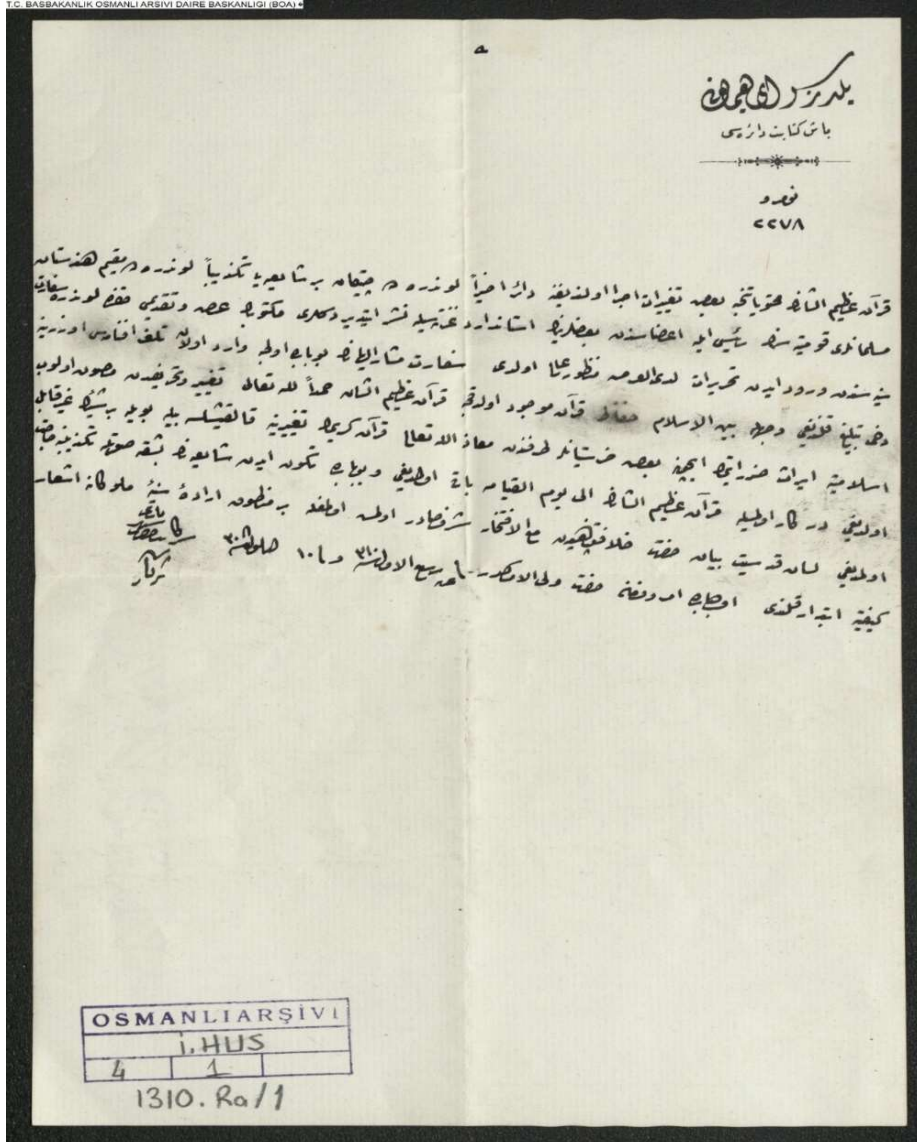 T.C. BASBAKANLIK OSMANLI ARSIVI DAIRE BASKANLIGI (BOA)
يلديز سراى همايونى
باش كتابت دائره‌سى
نومرو
٢٢٧٨
قرآن عظيم الشانك محتوياتنجه بعض تغييرات اجرا اولنديغنه دائر اخيراً لوندره ده چيقان بر شايعه‌يى تكذيباً لوندره ده مقيم هندستان
مسلمانلرى رئيسى ايله اعضاسندن بعضلرينك استاندارد غزته‌سيله نشر ايتديردكلرى مكتوبك عرض وتقديمى لوندره سفارت
سنيه‌سندن ورود ايدن تحريرات لدى العرض منظور عالى اولدى سفارت مشار اليهانك بوبابده اولجه وارد اولان تلغرافنامه‌سى اوزرينه
دخى تبليغ قلنديغى وجهله بين الاسلام قرآن موجود اولدقجه قرآن عظيم الشان حمداً لله تعالى تغيير وتحريفدن مصون اولوب
اسلاميته ايراث ضرر ايتمك ايچون بعض خرستيانلر طرفندن معاذ الله تعالى قرآن كريمك تغييرينه قالقيشلسه بيله بويله بر شيئك غير قابل
اولديغى دركار اولمغله قرآن عظيم الشانك الى يوم القيامه باقى اولديغى وبوبابده تكون ايدن شايعه‌نك
اولديغى لسان قدسيت بيان حضرت خلافتپناهيدن مع الافتخار شرفصادر اولمش اولمغله بر منطوق اراده سنيه ملوكانه اشعار
كيفيته ابتدار قلندى اولبابده امر وفرمان حضرت ولى الامركدر فى ربيع الاول سنه ٣١٠ و فى ١٠ ايلول سنه ٣٠٨
ثريا
OSMANLI ARŞİVİ
İ.HUS
4 1
1310.Ra/1